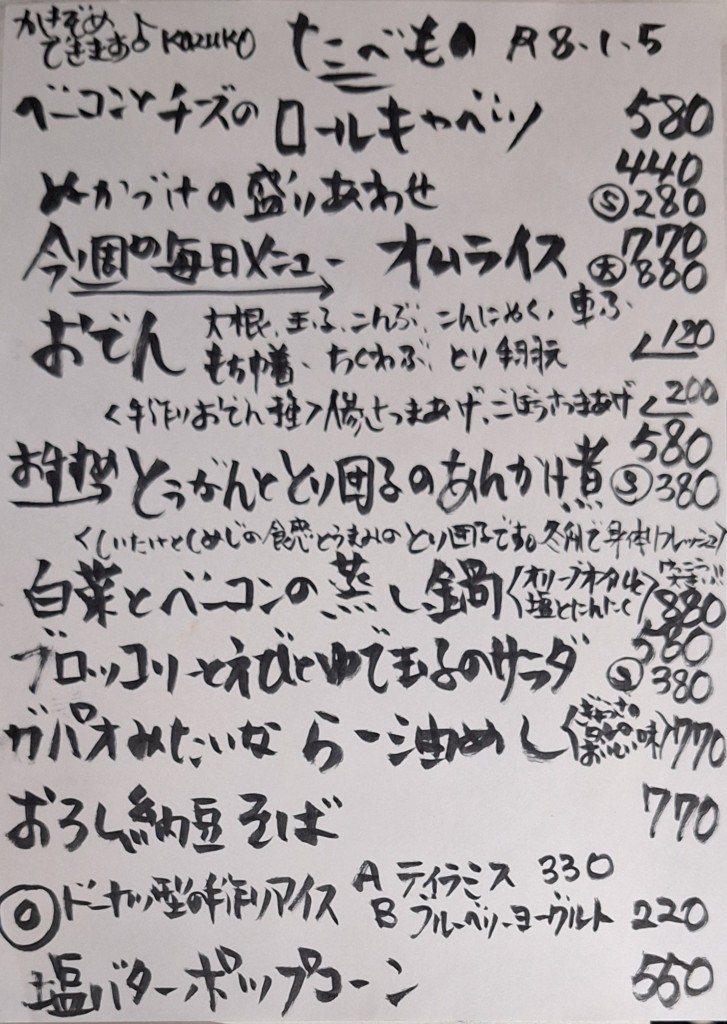 かきぞめ
できますよ KAZUKO たべもの R8.1.5
ベーコンとチーズの ロールキャベツ 580
ぬかづけの盛りあわせ 440
Ⓢ280
今週の毎日メニュー オムライス 770
㊅880
おでん 大根、玉子、こんぶ、こんにゃく、車ふ
もち巾着、ちくわぶ、とり手羽元 120
<手作りおでん種> さつまあげ、ごぼうさつまあげ 200
おすすめ とうがんととり団子のあんかけ煮 580
Ⓢ380
<しいたけとしめじの食感とうまみのとり団子です。冬瓜で身体リフレッシュ>
白菜とベーコンの蒸し鍋 <オリーブオイルと
塩とにんにく> 880
ブロッコリーとえびとゆで玉子のサラダ 580
Ⓢ380
ガパオみたいな らー油めし おいしい味> 770
おろし納豆そば 770
◎ドーナツ型の手作りアイス A ティラミス 330
B ブルーベリーヨーグルト 220
塩バターポップコーン 550